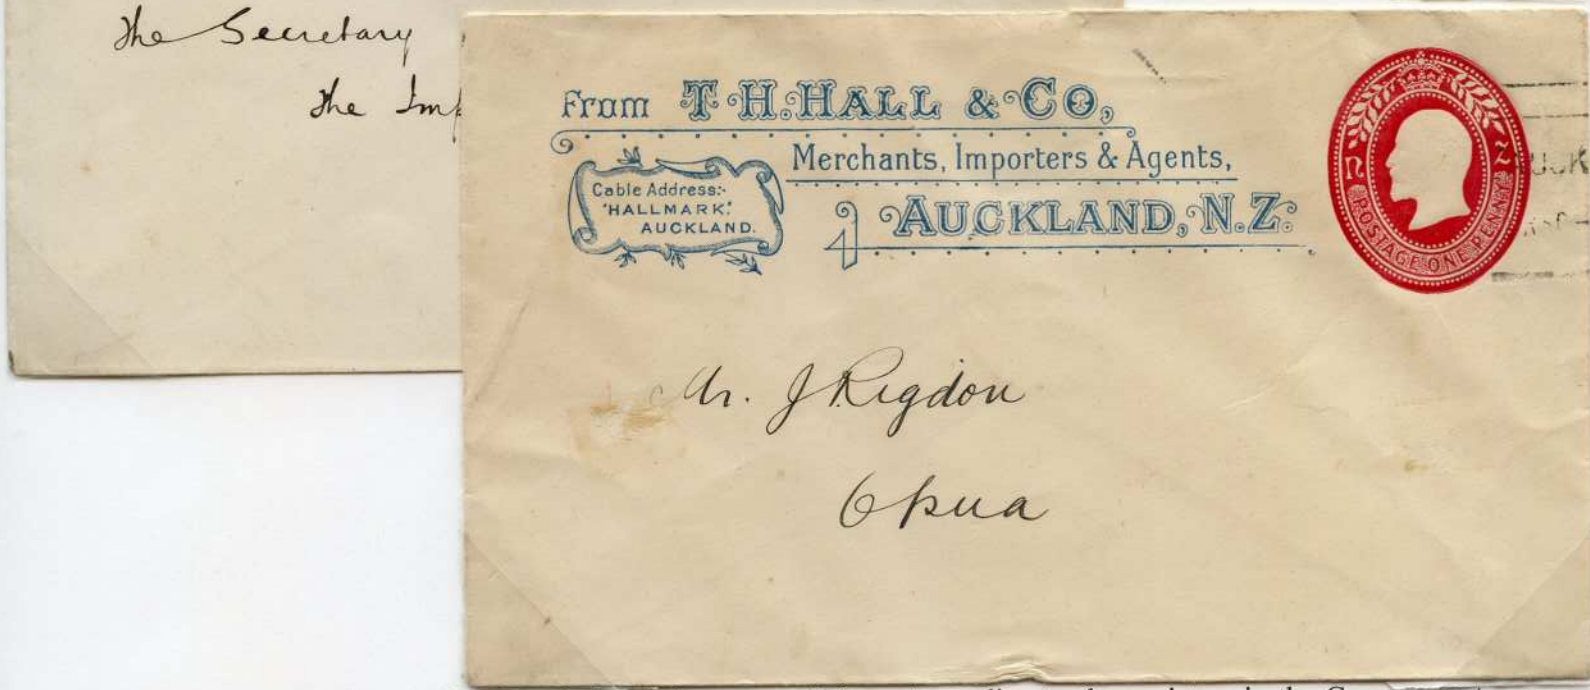 The Secretary
The
From T.H. HALL & CO,
Merchants, Importers & Agents,
AUCKLAND, N.Z.
Cable Address:-
"HALLMARK."
AUCKLAND.
N Z
POSTAGE ONE PENNY
Mr. J Rigdon
Opua